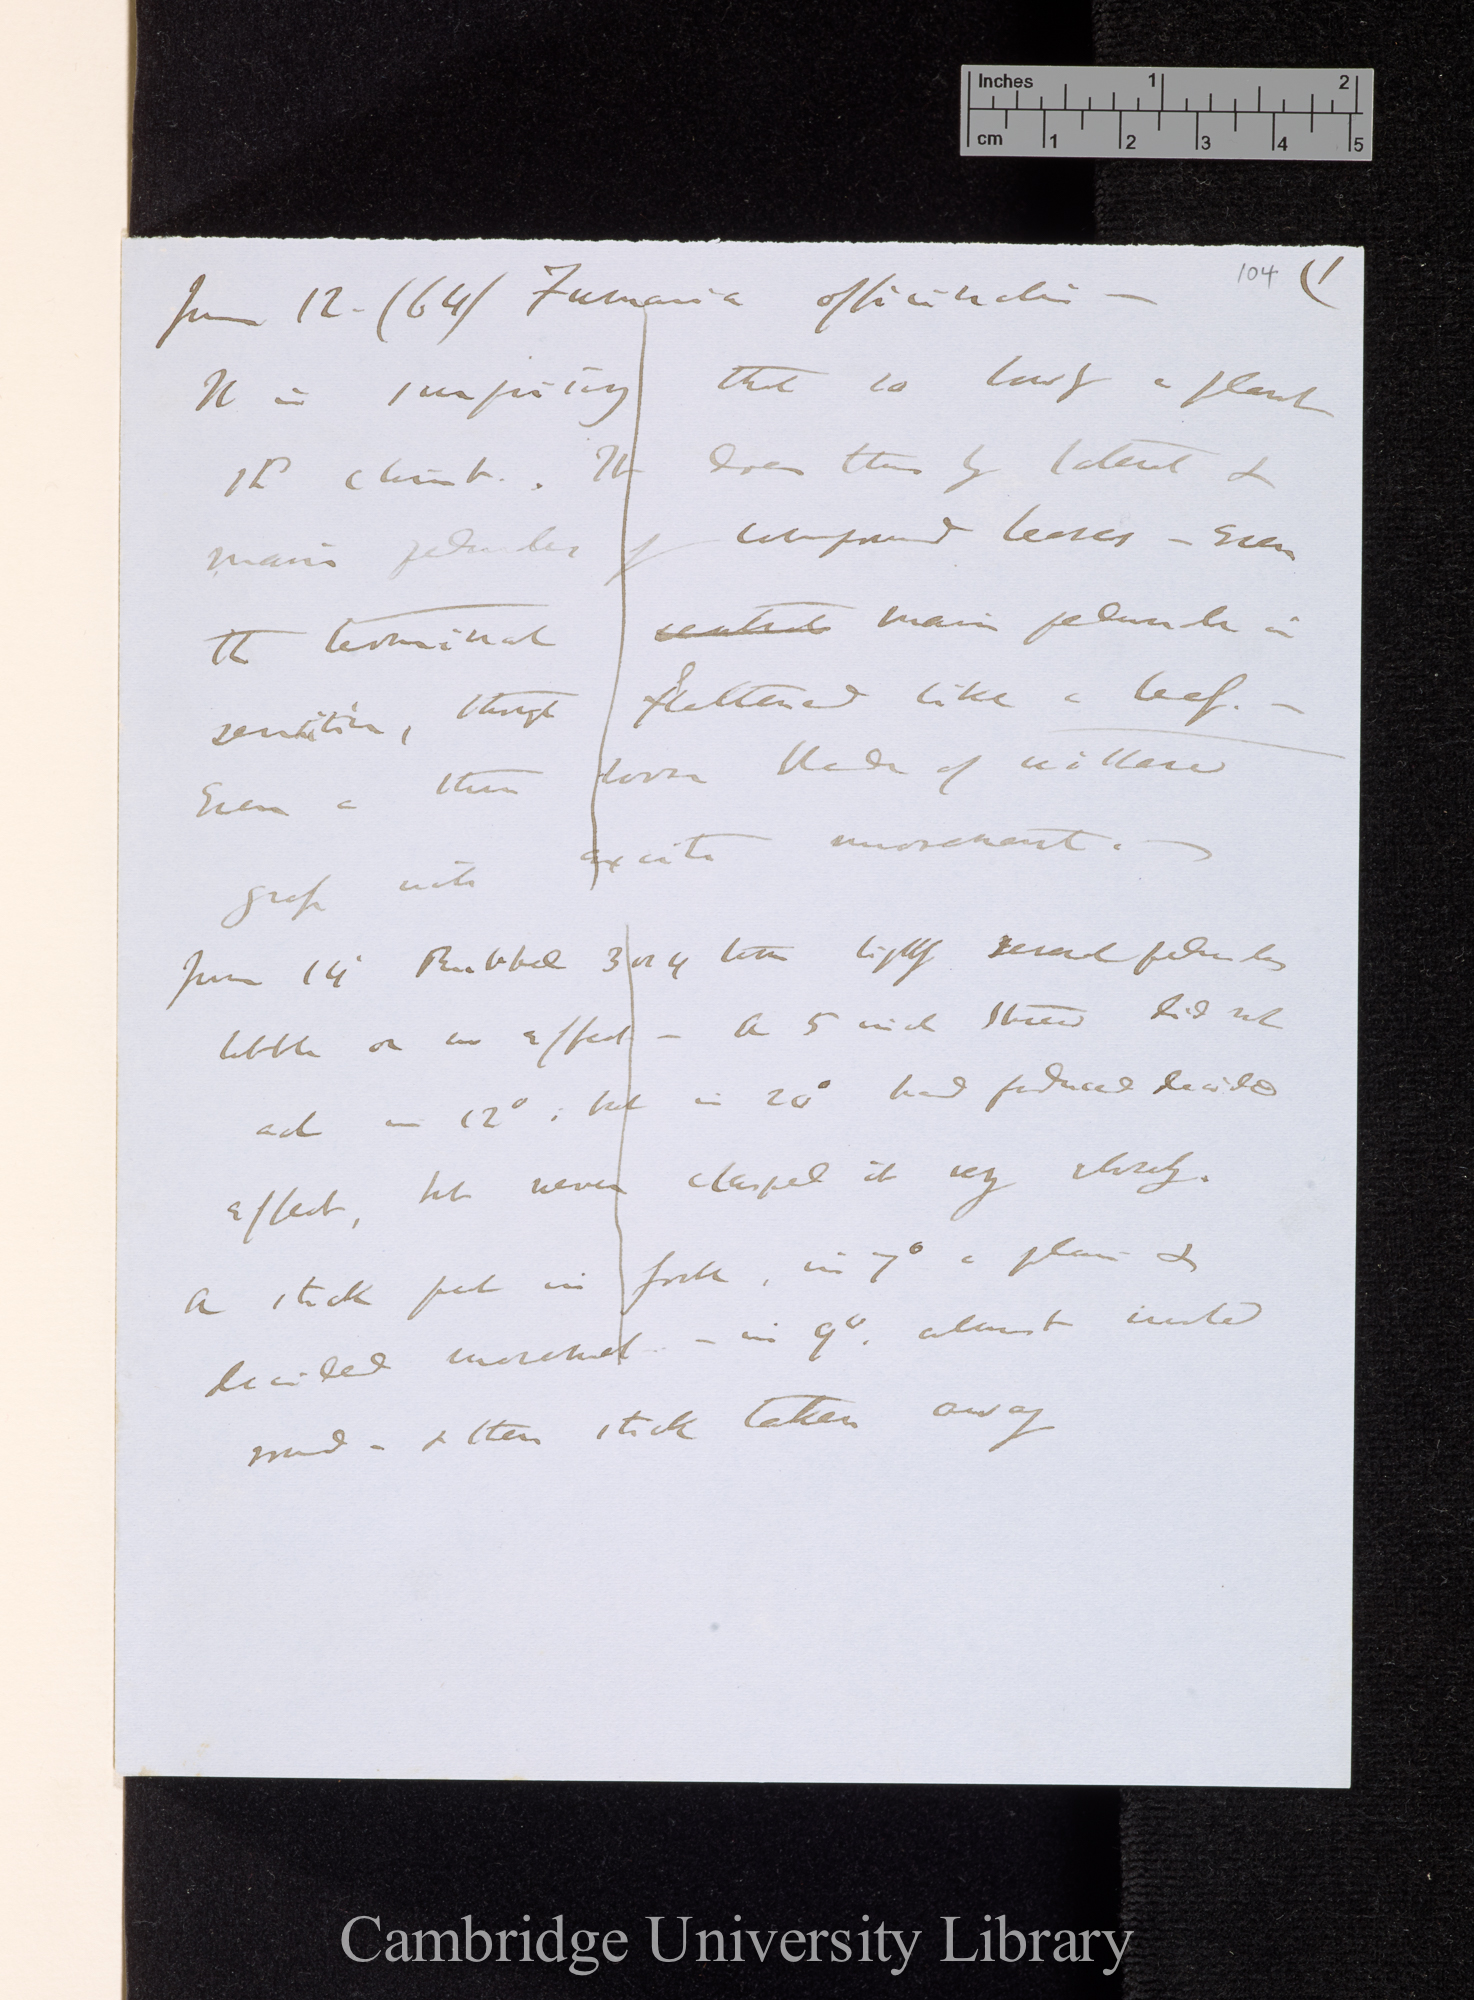 Inches 1 2
cm 1 2 3 4 5
104 (1
June 12 - (64) Fumaria officinalis —
It is surprising that so lowly a plant
shd climb. It does this by lateral &
main peduncles of compound leaves — Even
the terminal main peduncle is
sensitive, though flattened like a leaf. —
Even a thin blade of withered
grass will excite movement. —
June 14 Rubbed 3 or 4 times lightly several peduncles
little or no effect — A 5 inch stick did not
act in 12°; but in 20° had produced decided
effect, but never clasped it very closely.
A stick put in fork, in 7° a plain &
decided movement — in 9°. almost
round — & then stick taken away
Cambridge University Library